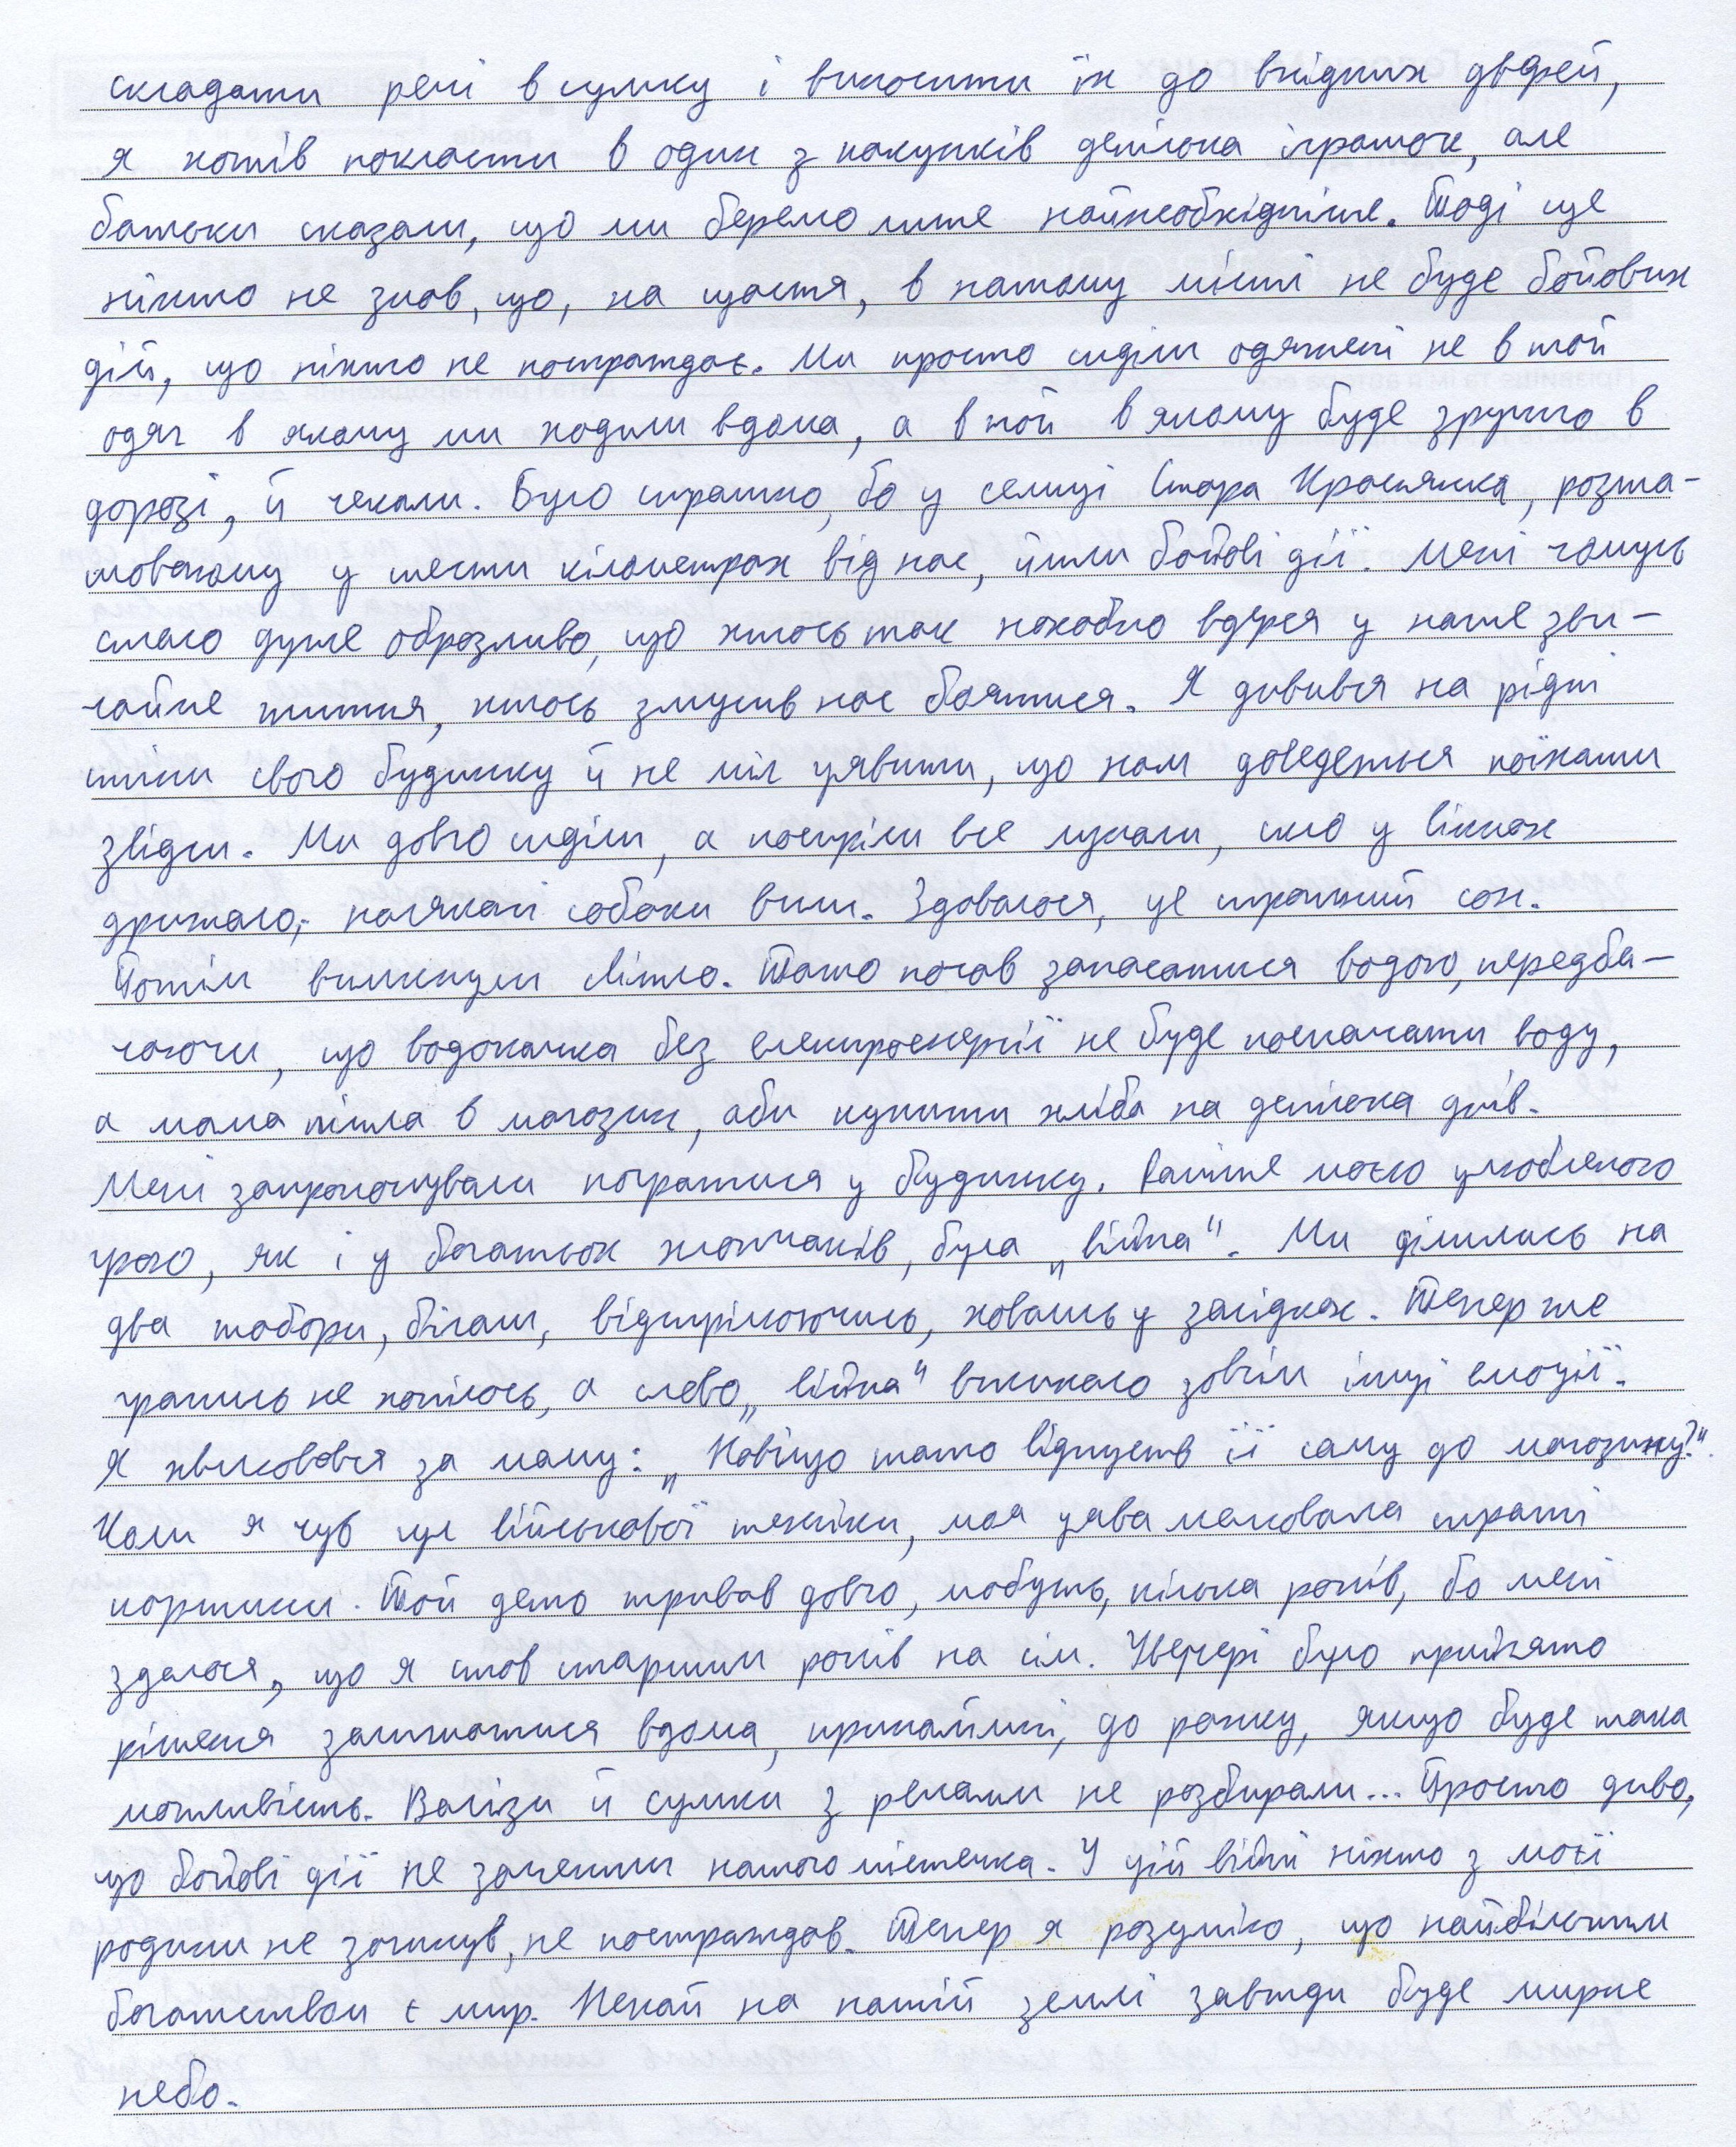 складати речі в сумку і виносити їх до вхідних дверей,
я хотів покласти в один з пакунків декілька іграшок, але
батьки сказали, що ми беремо лише найнеобхідніше. Тоді ще
ніхто не знав, що, на щастя, в нашому місті не буде бойових
дій, що ніхто не постраждає. Ми просто сиділи одягнені не в той
одяг в якому ми ходили вдома, а в той в якому буде зручно в
дорозі, й чекали. Було страшно, бо у селищі Стара Краснянка, розта-
шованому у шести кілометрах від нас, йшли бойові дії. Мені чомусь
стало дуже образливо, що хтось так нахабно вдерся у наше зви-
чайне життя, хтось змусив нас боятися. Я дивився на рідні
стіни свого будинку й не міг уявити, що нам доведеться поїхати
звідси. Ми довго сиділи, а постріли все лунали, скло у вікнах
дрижало, налякані собаки вили. Здавалося, це страшний сон.
Потім вимкнули світло. Тато почав запасатися водою, передба-
чаючи, що водокачка без електроенергії не буде постачати воду,
а мама пішла в магазин, аби купити хліба на декілька днів.
Мені запропонували погратися у будинку. Раніше моєю улюбленою
грою, як і у багатьох хлопчаків, була „війна“. Ми ділились на
два табори, бігали, відстрілюючись, ховались у засідках. Тепер же
гратись не хотілось, а слово „війна“ викликало зовсім інші емоції.
Я хвилювався за маму: „Навіщо тато відпустив її саму до магазину?“.
Коли я чув гул військової техніки, моя уява малювала страшні
картини. Той день тривав довго, мабуть, кілька років, бо мені
здалося, що я став старшим років на сім. Увечері було прийнято
рішення залишатися вдома, принаймні, до ранку, якщо буде така
можливість. Валізи й сумки з речами не розбирали... Просто диво,
що бойові дії не зачепили нашого містечка. У цій війні ніхто з моєї
родини не загинув, не постраждав. Тепер я розумію, що найбільшим
багатством є мир. Нехай на нашій землі завжди буде мирне
небо.